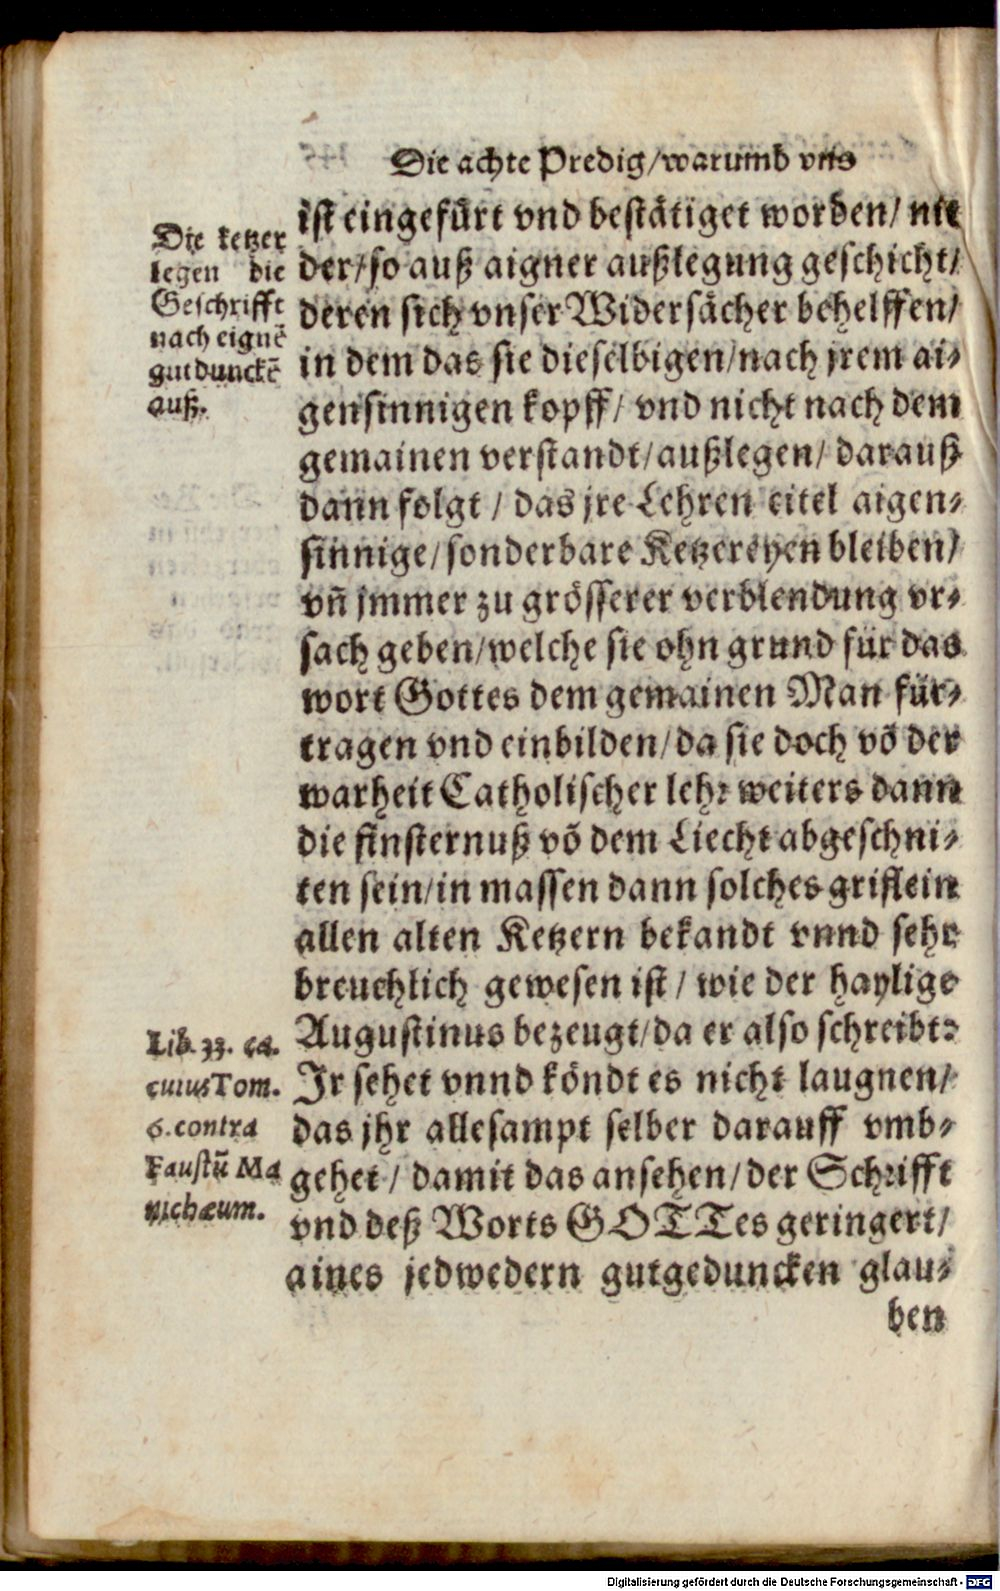 Die achte Predig/warumb vns
ist eingefürt vnd bestätiget worden/ nit
der/so auß aigner außlegung geschicht/
deren sich vnser Widersächer behelffen/
in dem das sie dieselbigen/nach jrem ai-
gensinnigen kopff/ vnd nicht nach dem
gemainen verstandt/außlegen/ darauß
dann folgt / das jre Lehren eitel aigen-
sinnige/sonderbare Ketzereyen bleiben/
vñ jmmer zu grösserer verblendung vr-
sach geben/welche sie ohn grund für das
wort Gottes dem gemainen Man für-
tragen vnd einbilden/da sie doch võ der
warheit Catholischer lehr weiters dann
die finsternuß võ dem Liecht abgeschni-
ten sein/in massen dann solches griflein
allen alten Ketzern bekandt vnnd sehr
breuchlich gewesen ist / wie der haylige
Augustinus bezeugt/da er also schreibt:
Jr sehet vnnd köndt es nicht laugnen/
das jhr allesampt selber darauff vmb-
gehet / damit das ansehen/der Schrifft
vnd deß Worts GOTTes geringert/
aines jedwedern gutgeduncken glau-
ben
Die ketzer
legen die
Geschrifft
nach eignẽ
gutdunckẽ
auß.
Lib. 33. ca.
cuius Tom.
6. contra
Faustũ Ma
nichæum.
Digitalisierung gefördert durch die Deutsche Forschungsgemeinschaft - DFG